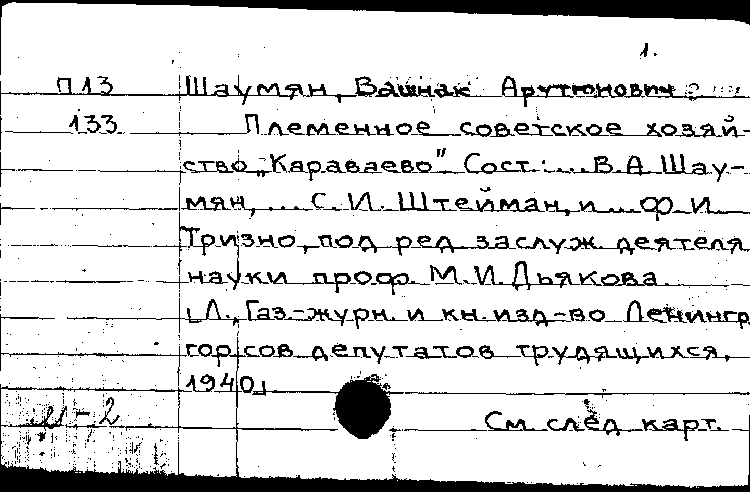 1.
П13 Шаумян, Вашнак Арутюнович
133 Племенное советское хозяй-
ство „Караваево". Сост.: ... В.А. Шау-
мян, ... С.И. Штейман, и ... Ф.И.
Тризно, под ред. заслуж. деятеля
науки проф. М.И. Дьякова.
[Л., Газ.-журн. и кн. изд-во Ленингр
гор. сов. депутатов трудящихся,
1940]
См. след. карт.